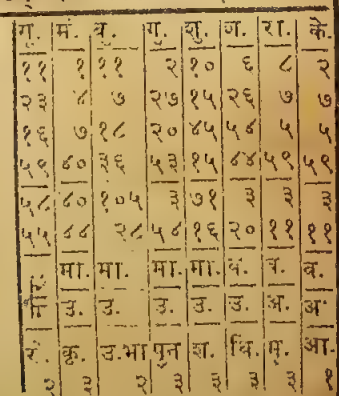 गु. मं. वु. गु. शु. श. रा. के.
११ १ ११ २ १० ६ ८ २
२३ ४ ७ २७ १५ २६ ७ ७
१६ ७ १८ २० ४५ ५४ ५ ५
५९ ४० ३६ ५३ १५ ४४ ५९ ५९
५८ ४० १०५ ३ ७१ ३ ३ ३
५५ ४४ २८ ५४ १६ २० ११ ११
मा. मा. मा. मा. व. व. व.
उ. उ. उ. उ. उ. अ. अ
रे. कृ. उ.भा पुन श. चि. मृ. आ.
२ ३ २ ३ ३ ३ ३ १